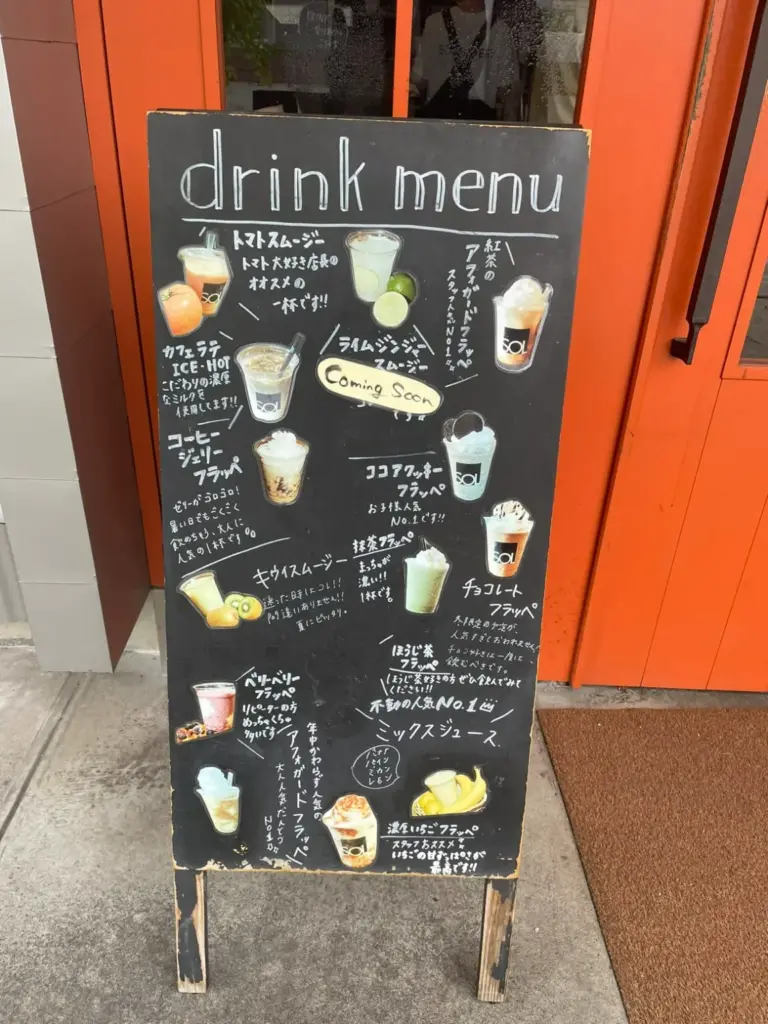 drink menu
トマトスムージー
トマト大好き店長の
オススメの
一杯です!!
紅茶の
アフォガードフラッペ
スタッフ人気No.1
SOL
SOL
カフェラテ
ICE・HOT
こだわりの濃厚
なミルクを
使用してます!!
SOL
ライムジンジャー
スムージー
Coming Soon
です
コーヒー
ジェリー
フラッペ
ゼリーがゴロゴロ!
暑い日でもごくごく
飲めちゃう、大人に
人気の1杯です
ココアクッキー
フラッペ
お子様人気
No.1です!!
SOL
抹茶フラッペ
まっちゃが
濃い!!
1杯です。
SOL
チョコレート
フラッペ
人気すぎておわれません!
飲むべきです。
キウイスムージー
迷った日はコレ!!
間違いありません!!
夏にピッタリ。
ほうじ茶
フラッペ
ほうじ茶好きの方ぜひ飲んでみて
ください!!
ベリーベリー
フラッペ
リピーターの方
めっちゃくちゃ
多いです
不動の人気No.1
ミックスジュース
バナナ
パイン
ミカン
レモン
年中かわらず人気の
アフォガードフラッペ
大人人気だんとつ
No.1
SOL
濃厚いちごフラッペ
スタッフおススメ
いちごの甘ずっぱさが
最高です!!